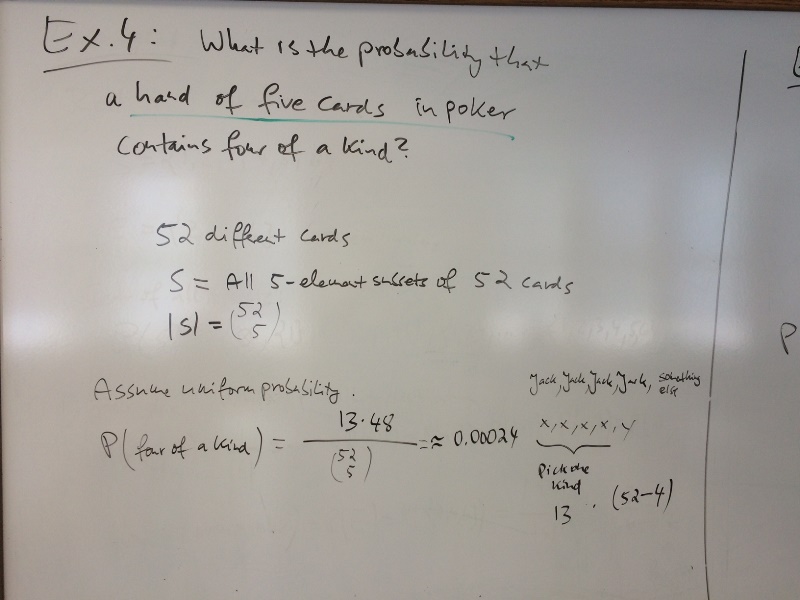 Ex.4: What is the probability that
a hand of five cards in poker
contains four of a kind?
52 different cards
S = All 5-element subsets of 52 cards
|S| = (52 5)
Assume uniform probability.
P(four of a kind) = 13·48 / (52 5) = ≈ 0.00024
Jack, Jack, Jack, Jack, something else
x, x, x, x, y
Pick one
kind
13 · (52-4)
P